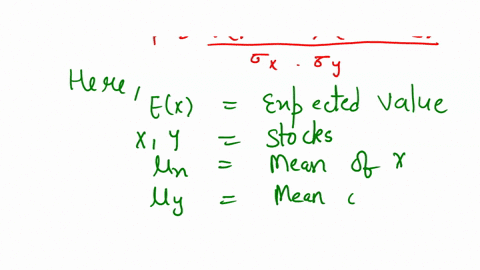 σx . σy
Here,
E(x) = Expected value
x, y = Stocks
μx = Mean of x
μy = Mean